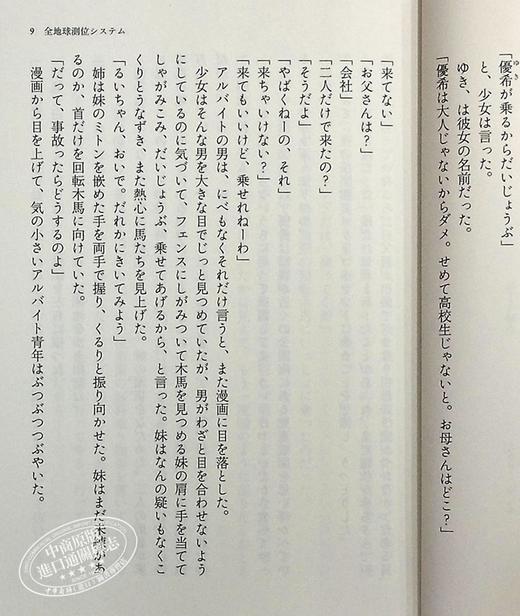 「優希が乗るからだいじょうぶ」
と、少女は言った。
ゆき、は彼女の名前だった。
「優希は大人じゃないからダメ。せめて高校生じゃないと。お母さんはどこ?」
9 全地球測位システム
「来てない」
「お父さんは?」
「会社」
「二人だけで来たの?」
「そうだよ」
「やばくねーの、それ」
「来ちゃいけない?」
「来てもいいけど、乗せれねーわ」
アルバイトの男は、にべもなくそれだけ言うと、また漫画に目を落とした。
少女はそんな男を大きな目でじっと見つめていたが、男がわざと目を合わせないよう
にしているのに気づいて、フェンスにしがみついて木馬を見つめる妹の肩に手を当てて
しゃがみこみ、だいじょうぶ、乗せてあげるから、と言った。妹はなんの疑いもなくこ
くりとうなずき、また熱心に馬たちを見上げた。
「るいちゃん、おいで。だれかにきいてみよう」
姉は妹のミトンを嵌めた手を両手で握り、くるりと振り向かせた。妹はまだ木馬があ
るのか、首だけを回転木馬に向けていた。
「だって、事故ったらどうするのよ」
漫画から目を上げて、気の小さいアルバイト青年はぶつぶつつぶやいた。
中商原版
進口通關雜志